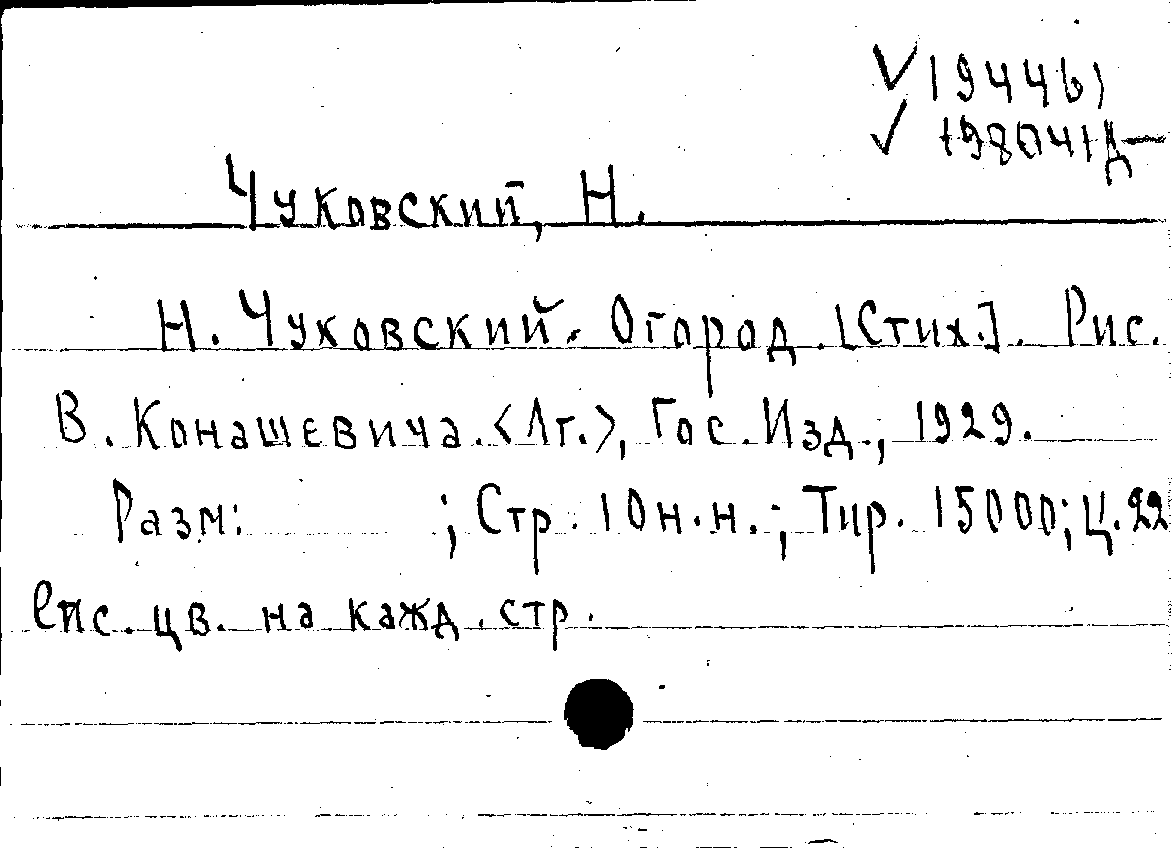 ✓194461
✓ 198041Д—
Чуковский, Н.
Н. Чуковский. Огород. [Стих.]. Рис.
В. Конашевича. <Лг.>, Гос. Изд., 1929.
Разм: ; Стр. 10 н.н.; Тир. 15000; Ц. 22
цв. на кажд. стр.